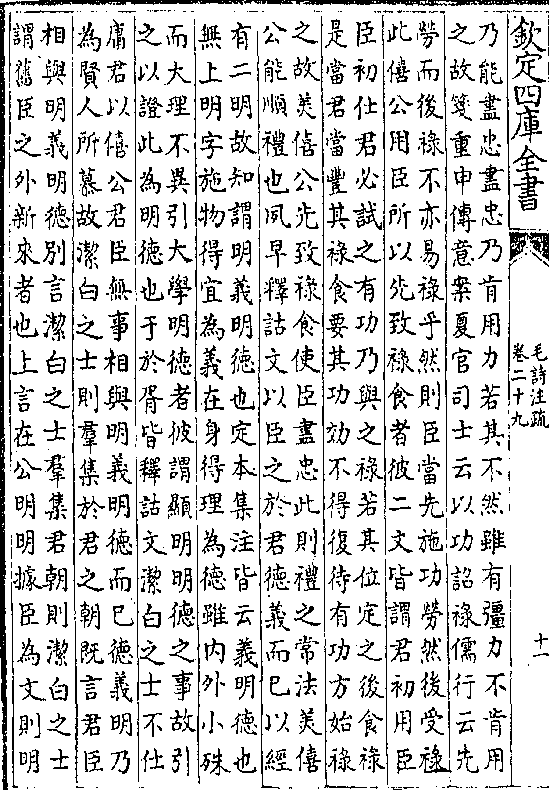 欽定四庫全書
毛詩注疏
卷二十九
十一
乃能盡忠盡忠乃肯用力若其不然雖有彊力不肯用
之故箋重申傳意案夏官司士云以功詔祿儒行云先
勞而後祿不亦易祿乎然則臣當先施功勞然後受祿
此僖公用臣所以先致祿食者彼二文皆謂君初用臣
臣初仕君必試之有功乃與之祿若其位定之後食祿
是當君當豐其祿食要其功効不得復待有功方始祿
之故美僖公先致祿食使臣盡忠此則禮之常法美僖
公能順禮也夙早釋詁文以臣之於君德義而已以經
有二明故知謂明義明德也定本集注皆云義明德也
無上明字施物得宜為義在身得理為德雖内外小殊
而大理不異引大學明德者彼謂顯明明德之事故引
之以證此為明德也于於胥皆釋詁文潔白之士不仕
庸君以僖公君臣無事相與明義明德而已德義明乃
為賢人所慕故潔白之士則羣集於君之朝既言君臣
相與明義明德别言潔白之士羣集君朝則潔白之士
謂舊臣之外新來者也上言在公明明據臣為文則明